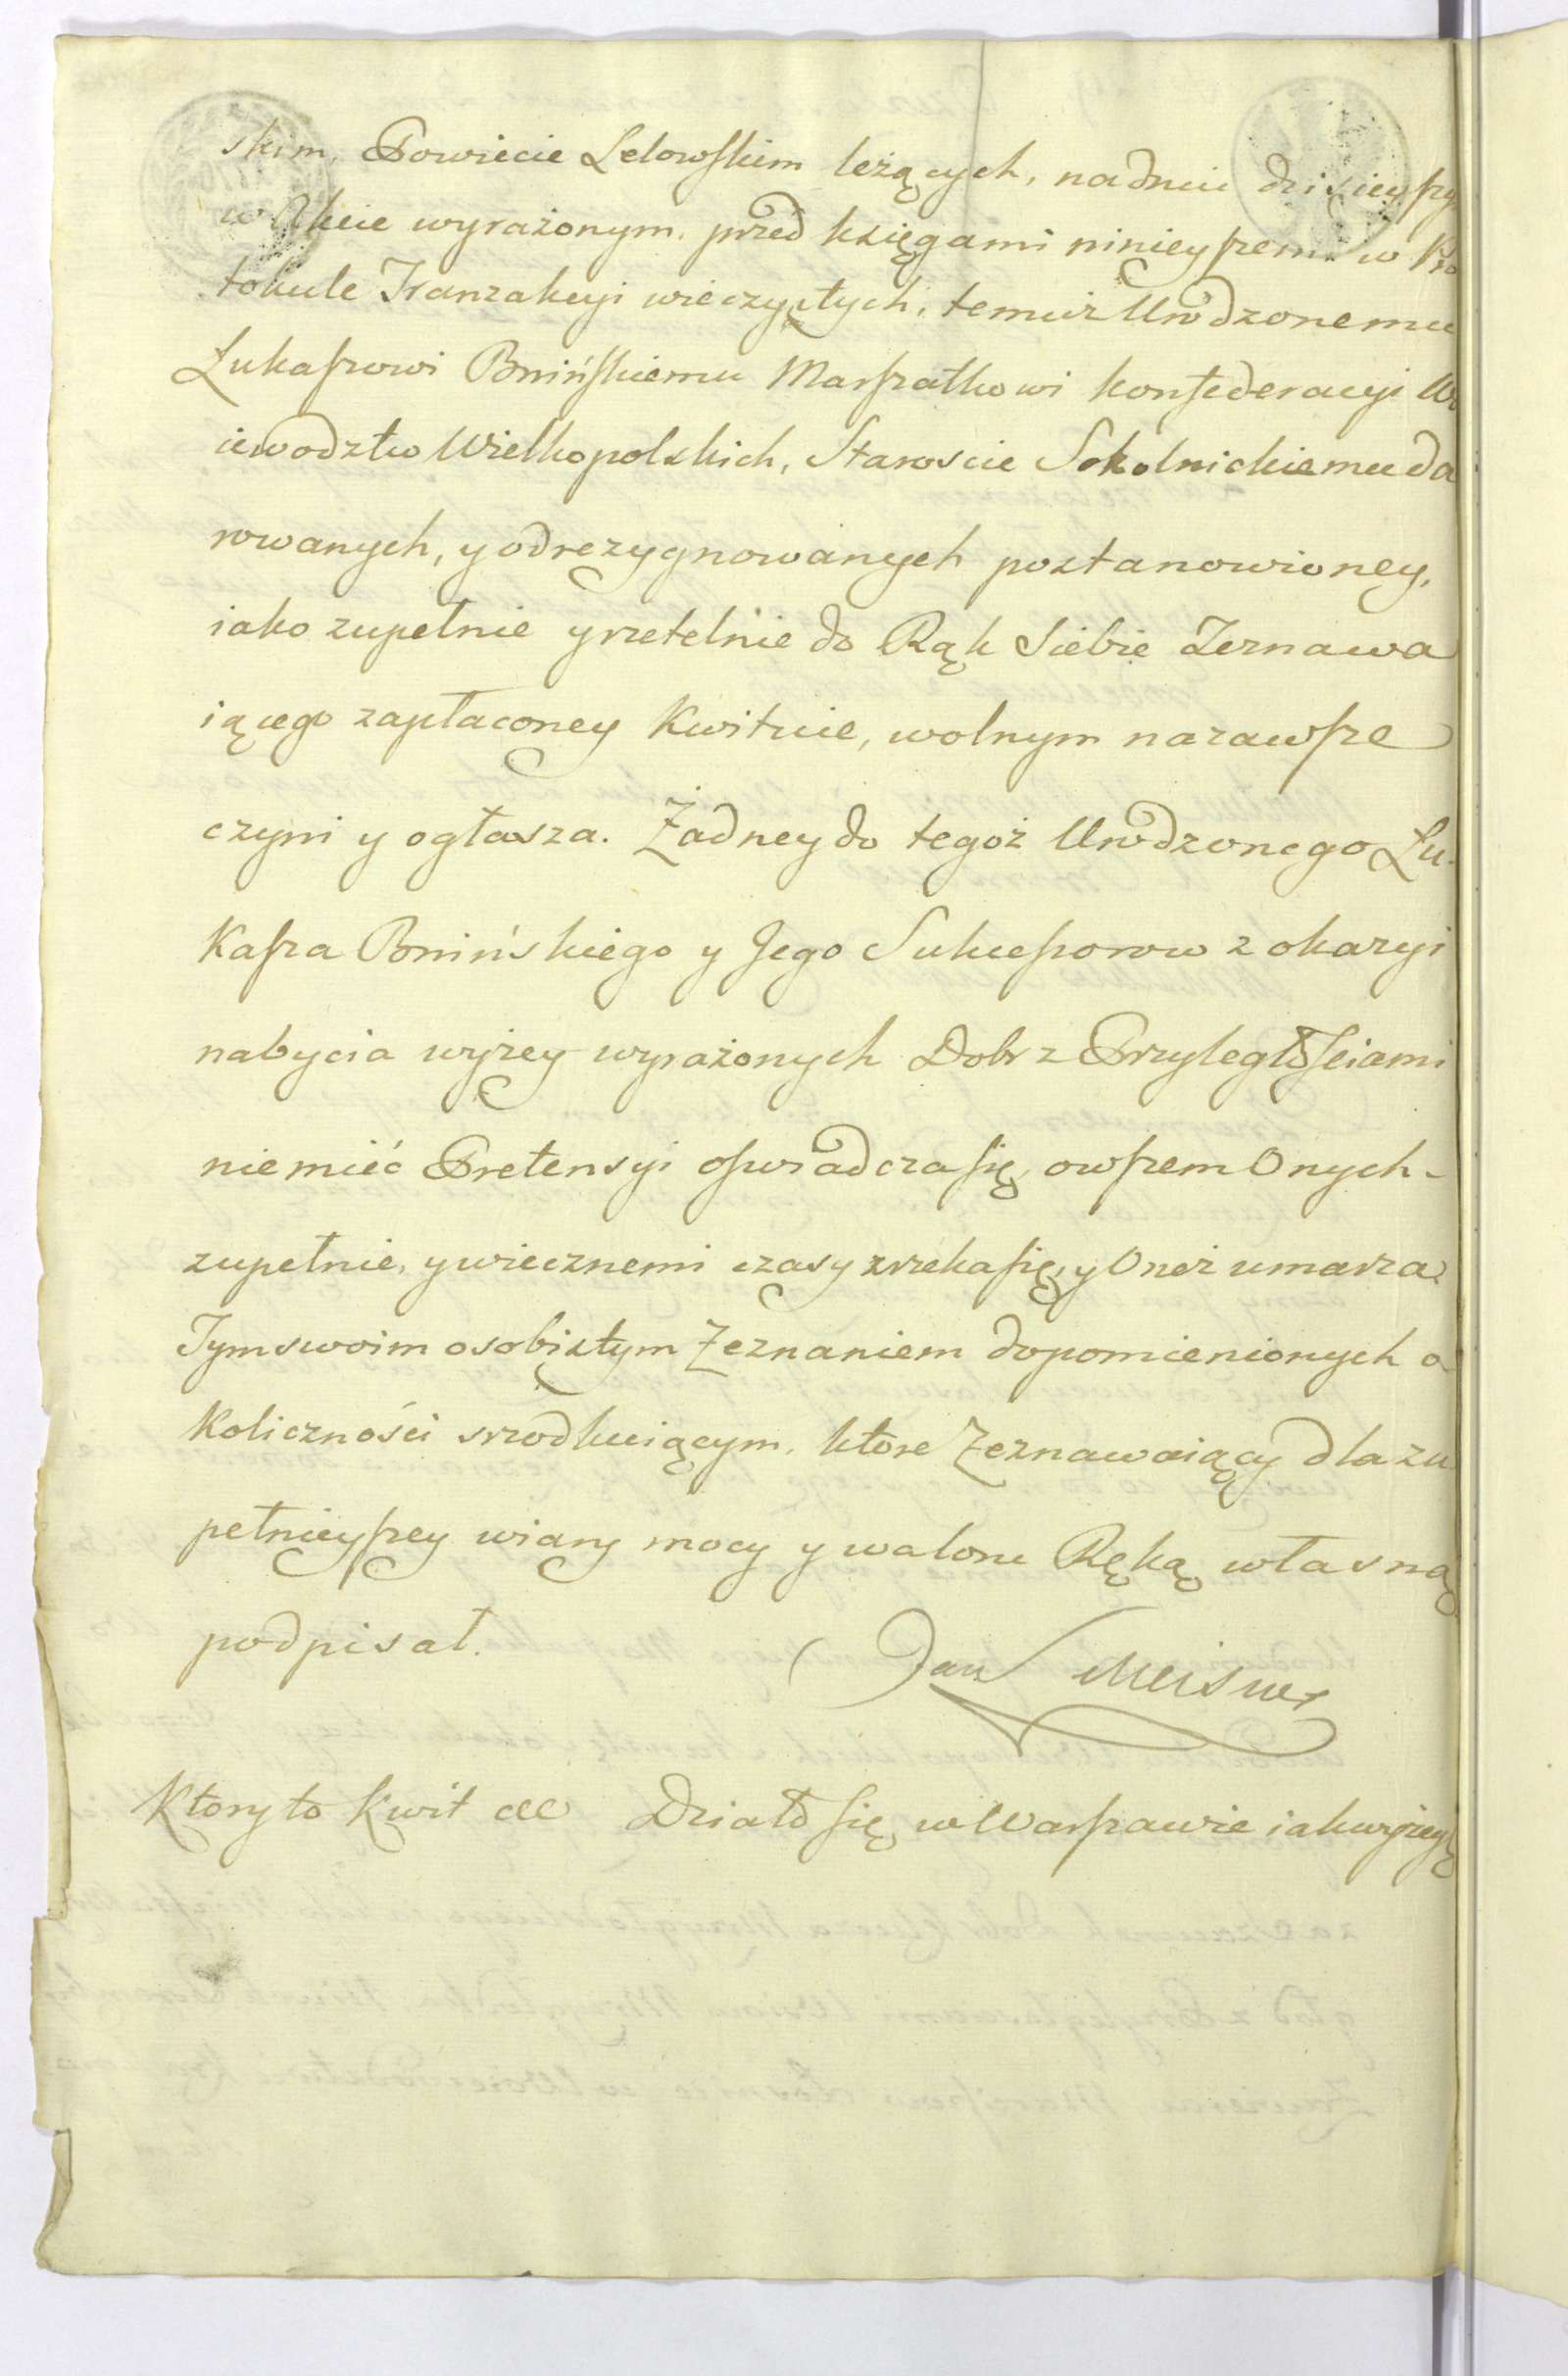 skim, Powiecie Lelowskim leżących, nadniu dzisieyszy
w Akcie wyrażonym. przed księgami ninieyszemi w Pro
tokule Tranzakcyi wieczystych, temuż Urodzonemu
Łukaszowi Bnińskiemu Marszałkowi konfederacyi Wo
iewodztw Wielkopolskich, Staroscie Sokolnickiemu da
rowanych, y odrezygnowanych postanowioney,
iako zupełnie y rzetelnie do Rąk Siebie Zeznawa
iącego zapłaconey Kwituie, wolnym nazawsze
czyni y ogłasza. Żadney do tegoż Urodzonego Łu-
kasza Bnińskiego y Jego Sukcessorow z okazyi
nabycia wyżey wyrażonych Dobr z Przyległościami
nie mieć Pretensyi oswiadcza się, owszem Onych-
zupełnie, y wiecznemi czasy zrzeka się, y Oneż umarza.
Tym swoim osobistym Zeznaniem do pomienionych o
koliczności srzodkuiącym. ktore Zeznawaiący dla zu
pełnieyszey wiary mocy y waloru Ręką własną
podpisał.
Jan Meisner
Ktory to Kwit etc Działo się w Warszawie iak wyżey